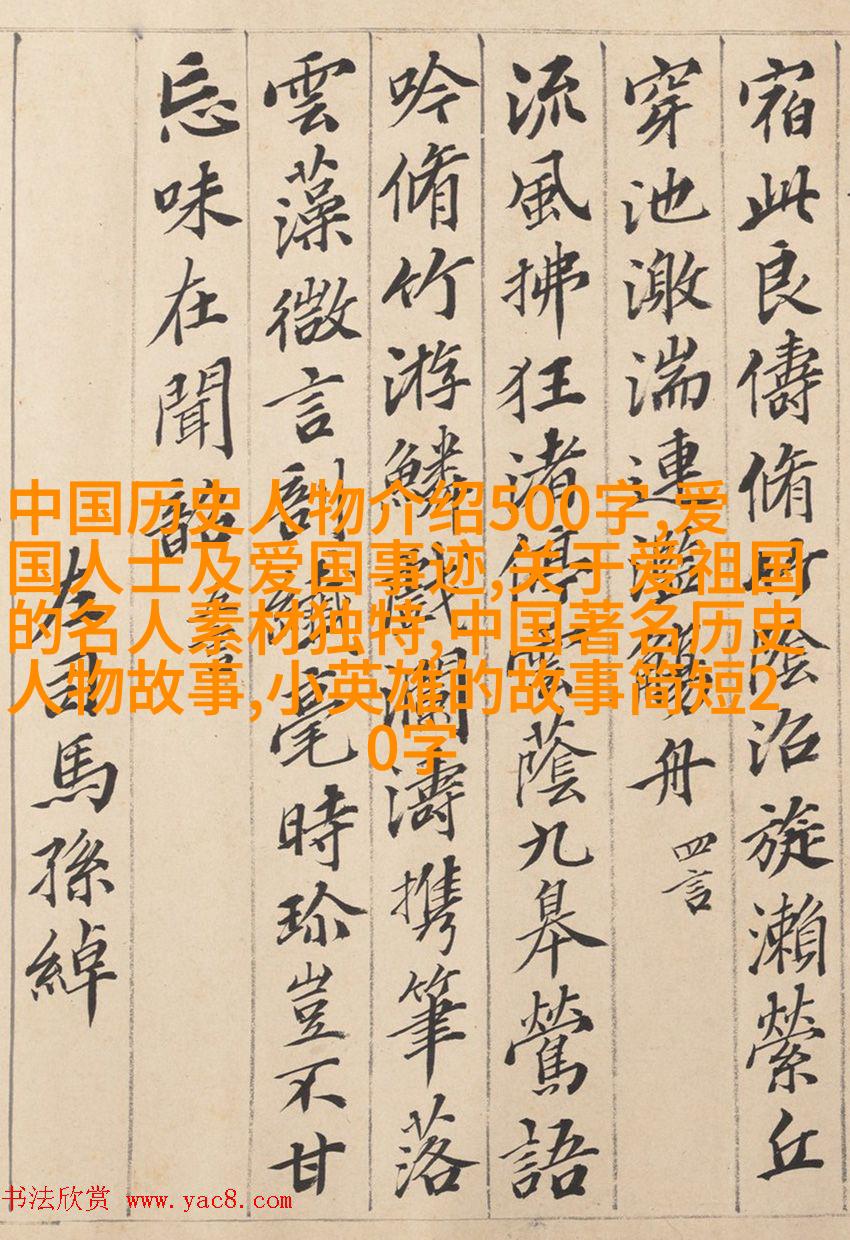 宿此良儔脩竹陰沼旋瀨縈丘
穿池激湍連濫觴舟 四言
流風拂枉渚停雲蔭九皋鶯語
吟脩竹游鱗戲瀾濤携筆落
雲藻微言剖纖毫時珎豈不甘
忘味在聞韶
左司馬孫綽
中国历史人物介绍500字,爱
国人士及爱国事迹,关于爱祖国
的名人素材独特,中国著名历史
人物故事,小英雄的故事简短2
0字
书法欣赏 www.yac8.com